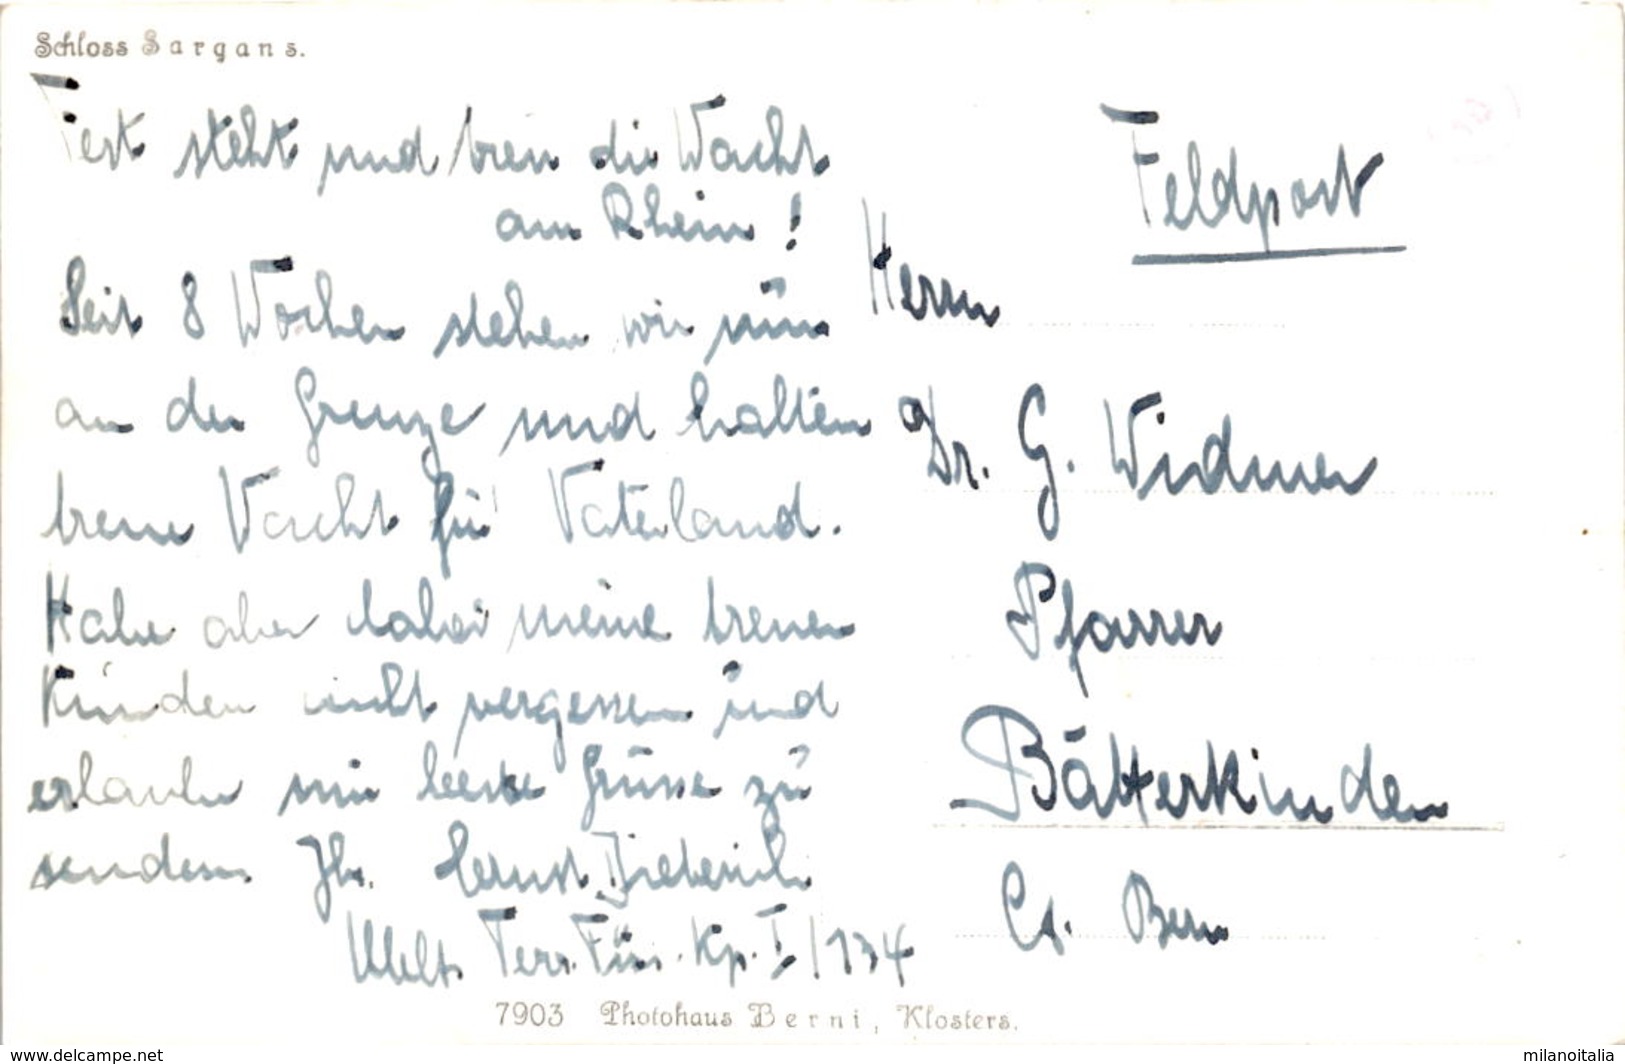 Schloss Sargans.
Fest steht und treu die Wacht
am Rhein!
Seit 8 Wochen stehen wir nun
an der Grenze und halten
treue Wacht für Vaterland.
Habe aber dabei meine treuen
Kunden nicht vergessen und
erlaube mir beste Grüsse zu
senden. Ihr. Ernst
Ter. Füs. Kp. I/134
7903 Photohaus Berni, Klosters.
Feldpost
Herrn
Dr. G. Widmer
Pfarrer
Bätterkinden
Ct. Bern
www.delcampe.net
milanoitalia